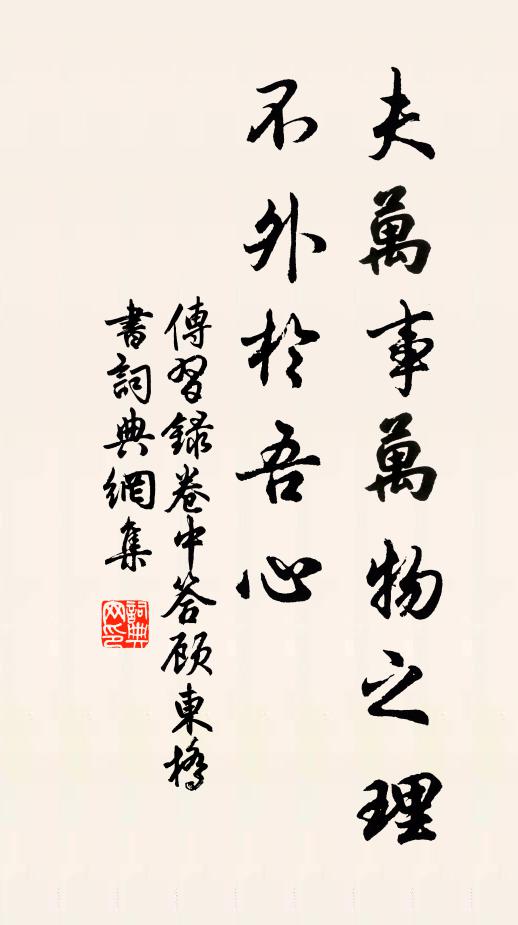 夫萬事萬物之理
不外於吾心
傳習録卷中答顾東橋
書詞典網集
詞典
网印